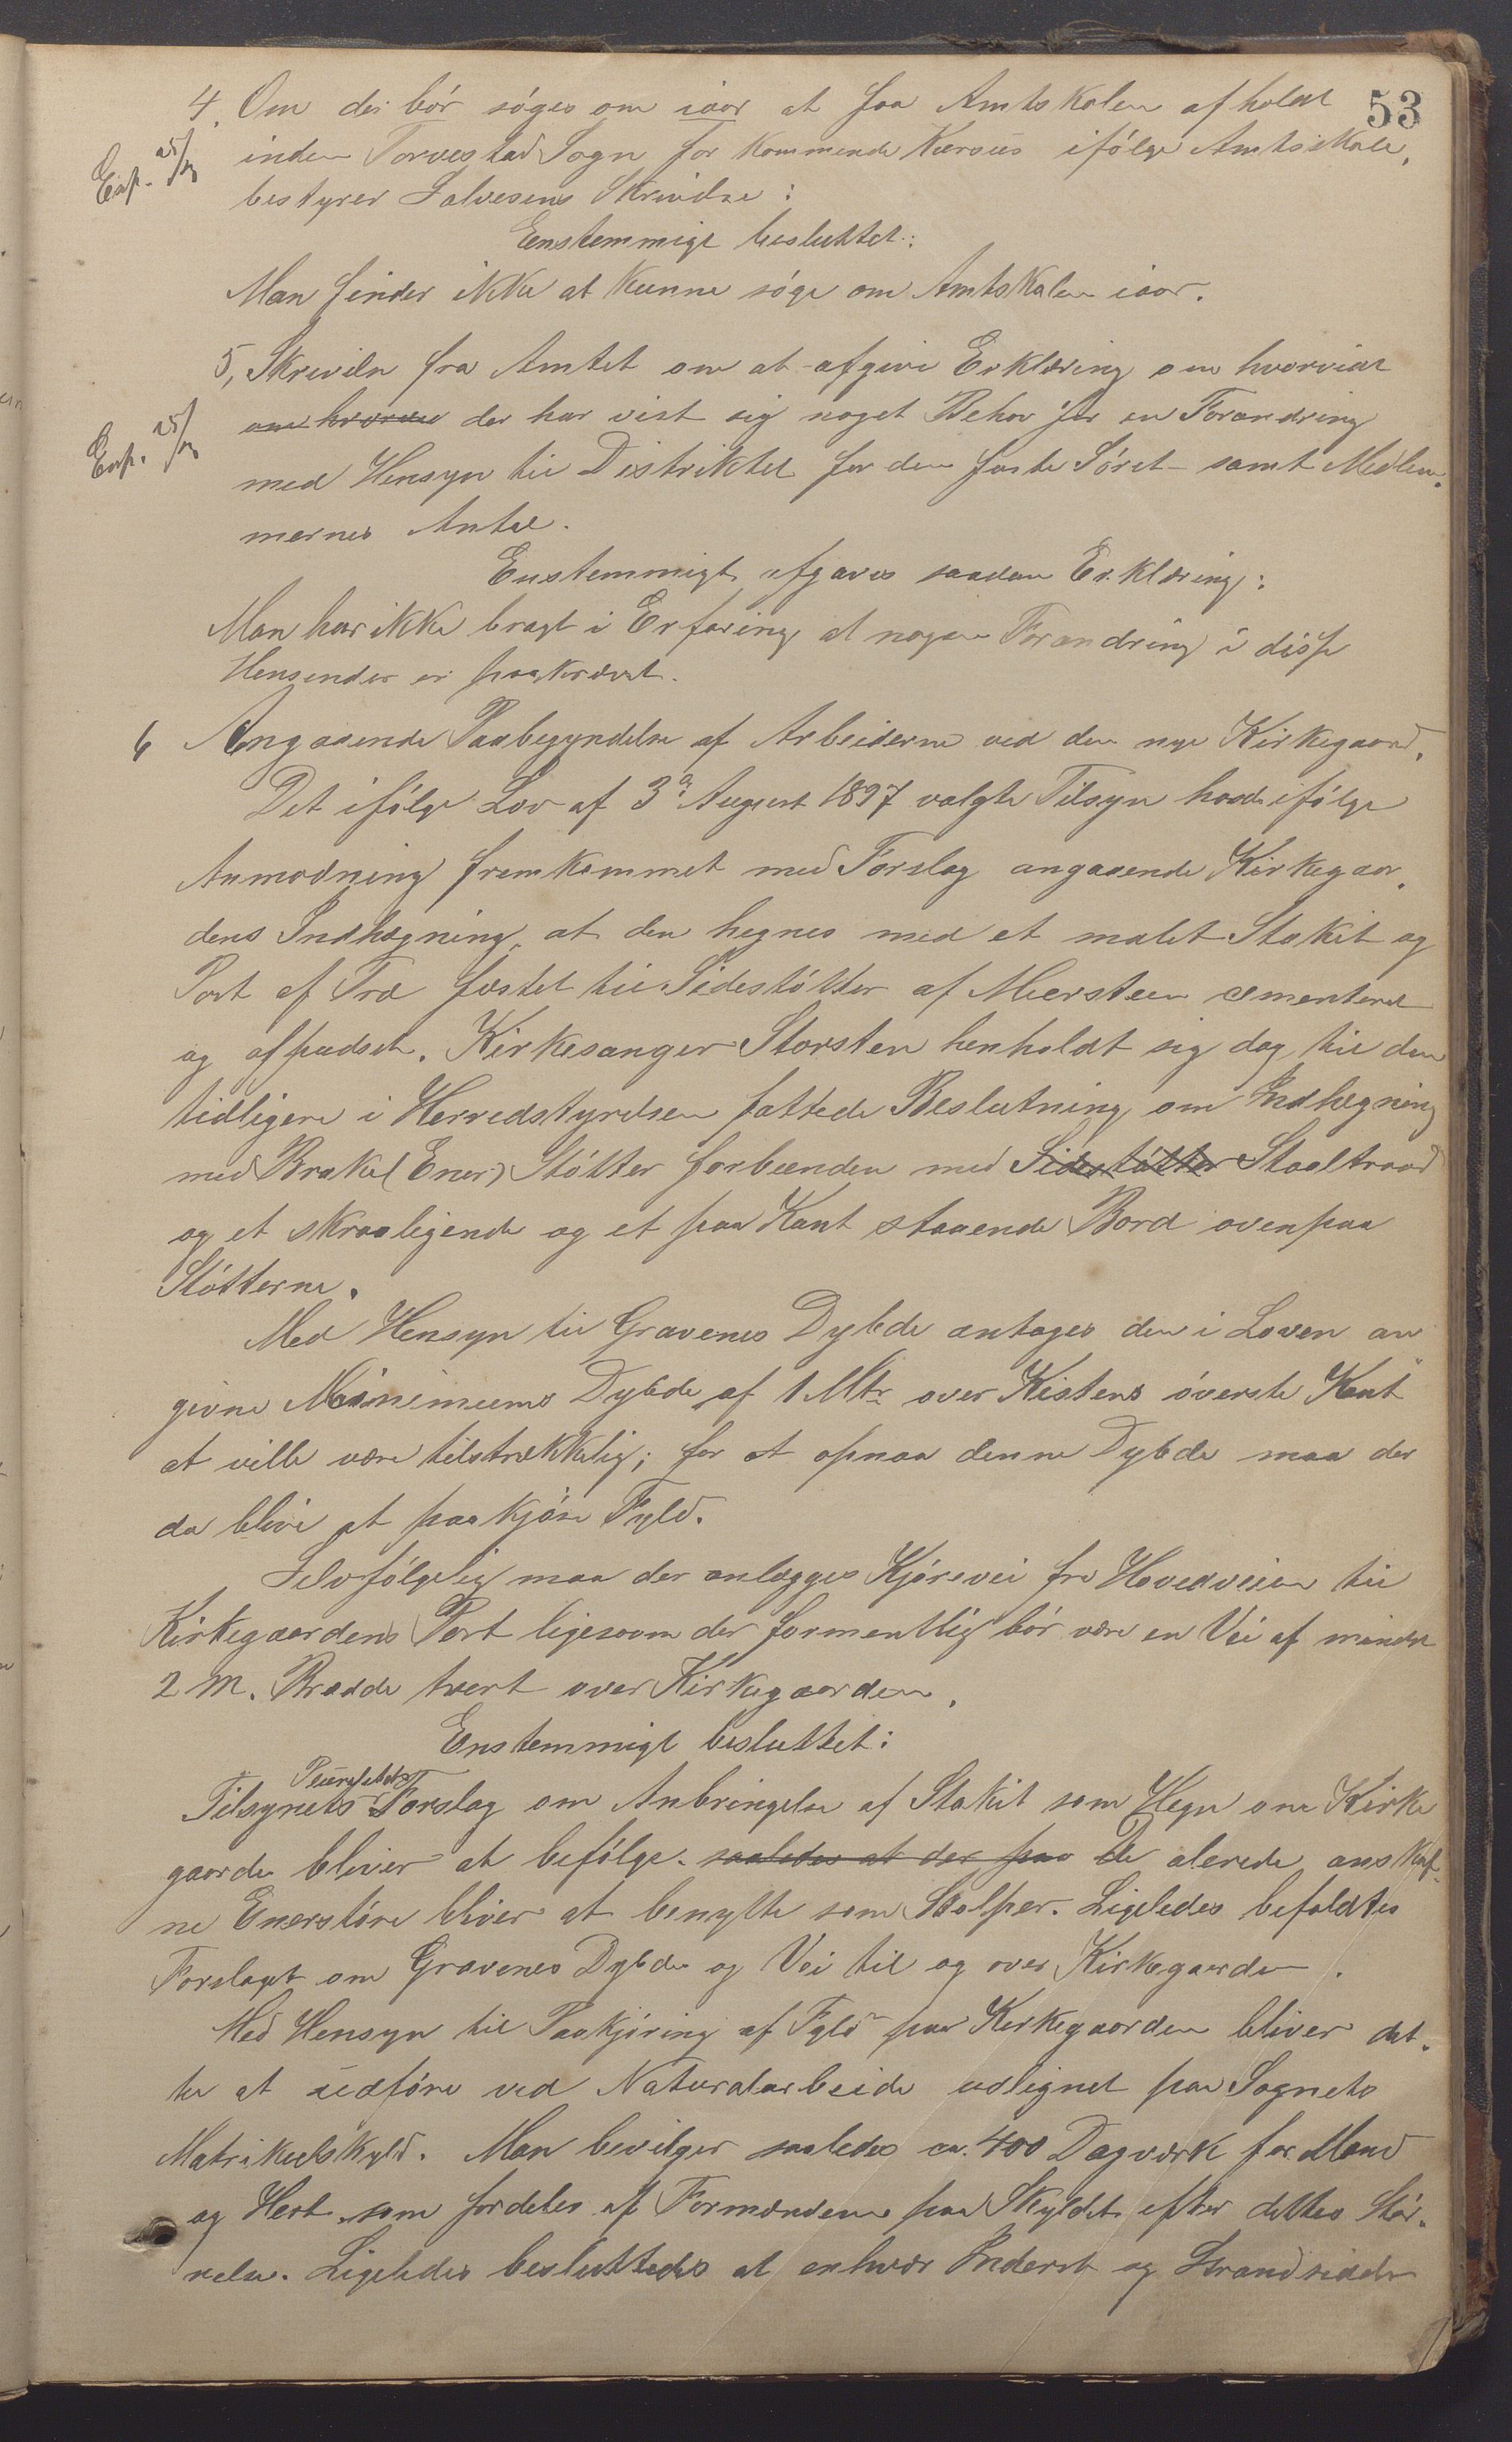 53
4. Om der bør søges om iaar at faa Amtskolen afholdt
Exp. 25/
inden Torvestad Sogn for kommende Kursus ifølge Amtsskole,
bestyrer Salvesens Skrivelse:
Eenstemmigt besluttet:
Man finder ikke at kunne søge om Amtskolen iaar.
5, Skrivelse fra Amtet om at afgive Erklæring om hvorvidt
Exp. 25/
om hvorvid der har vist sig noget Behov for en Forandring
med Hensyn til Distriktet for den faste Søret samt Medlem-
mernes Antal.
Enstemmigt afgaves saadan Erklæring:
Man har ikke bragt i Erfaring at nogen Forandring i disse
Hensender er paakrævet.
6 Angaaende Paabegyndelse af Arbeiderne ved den nye Kirkegaard.
Det ifølge Lov af 3die August 1897 valgte Tilsyn havde ifølge
Anmodning fremkommet med Forslag angaaende Kirkegaar-
dens Indhægning, at den hegnes med et malet Stakit og
Port af Træ fæstet til Sidestøtter af Mursteen cementeret
og afpudset. Kirkesanger Storsten henholdt sig dog til den
tidligere i Herredstyrelsen fattede Beslutning om Indhegning
med Brake (Ener) Støtter forbunden med Sidestøtter Staaltraad
og et skraaligende og et paa Kant staaende Bord ovenpaa
Støtterne.
Med Hensyn til Gravenes Dybde antages den i Loven an-
givne Minimums Dybde af 1 Mtr over Kistens øverste Kant
at ville være tilstrækkelig; for at opnaa denne Dybde maa der
da blive at paakjøre Fyld.
Selvfølgelig maa der anlægges Kjørevei fra Hovedveien til
Kirkegaardens Port ligesom der formentlig bør være en Vei af mindst
2 M. Bredde tvert over Kirkegaarden.
Enstemmigt besluttet:
Tilsynets Pluralitets Forslag om Anbringelse af Stakit som Hegn om Kirke
gaarde bliver at befølge. saaledes at der paa De alerede anskaf-
ne Enerstøre bliver at benytte som Stolper. Ligeledes befoldtes
Forslaget om Gravenes Dybde og Vei til og over Kirkegaarden.
Med Hensyn til Paakjøring af Fyld paa Kirkegaarden bliver det-
te at udføre ved Naturalarbeide udlignet paa Sognets
Matrikulskyld. Man bevilger saaledes ca. 400 Dagværk for Mand
og Hest som fordeles af Formændene paa Skyldet efter dettes Stør-
relse. Ligeledes besluttedes at enhver Inderst og Strandsidder